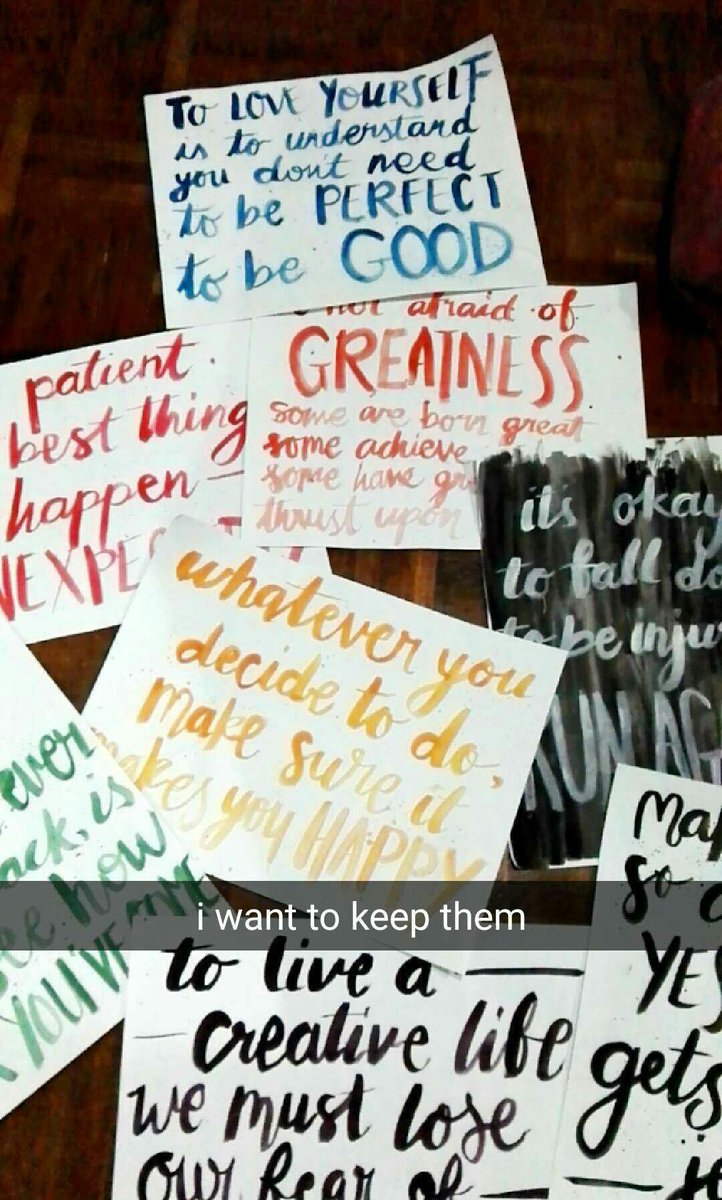 TO LOVE YOURSELF
is to understand
you don't need
to be PERFECT
to be GOOD
not afraid of
GREATNESS.
some are born great
some achieve
some have gr
thrust upon
patient.
best thing
happen —
NEXPE
it's okay
to fall do
to be inju
RUN AG
whatever you
decide to do,
make sure it
makes you HAPPY
ever
ack, is
see how
YOU'VE COME
i want to keep them
to live a —
— creative life
we must lose
our fear of
Ma
so
YES
gets